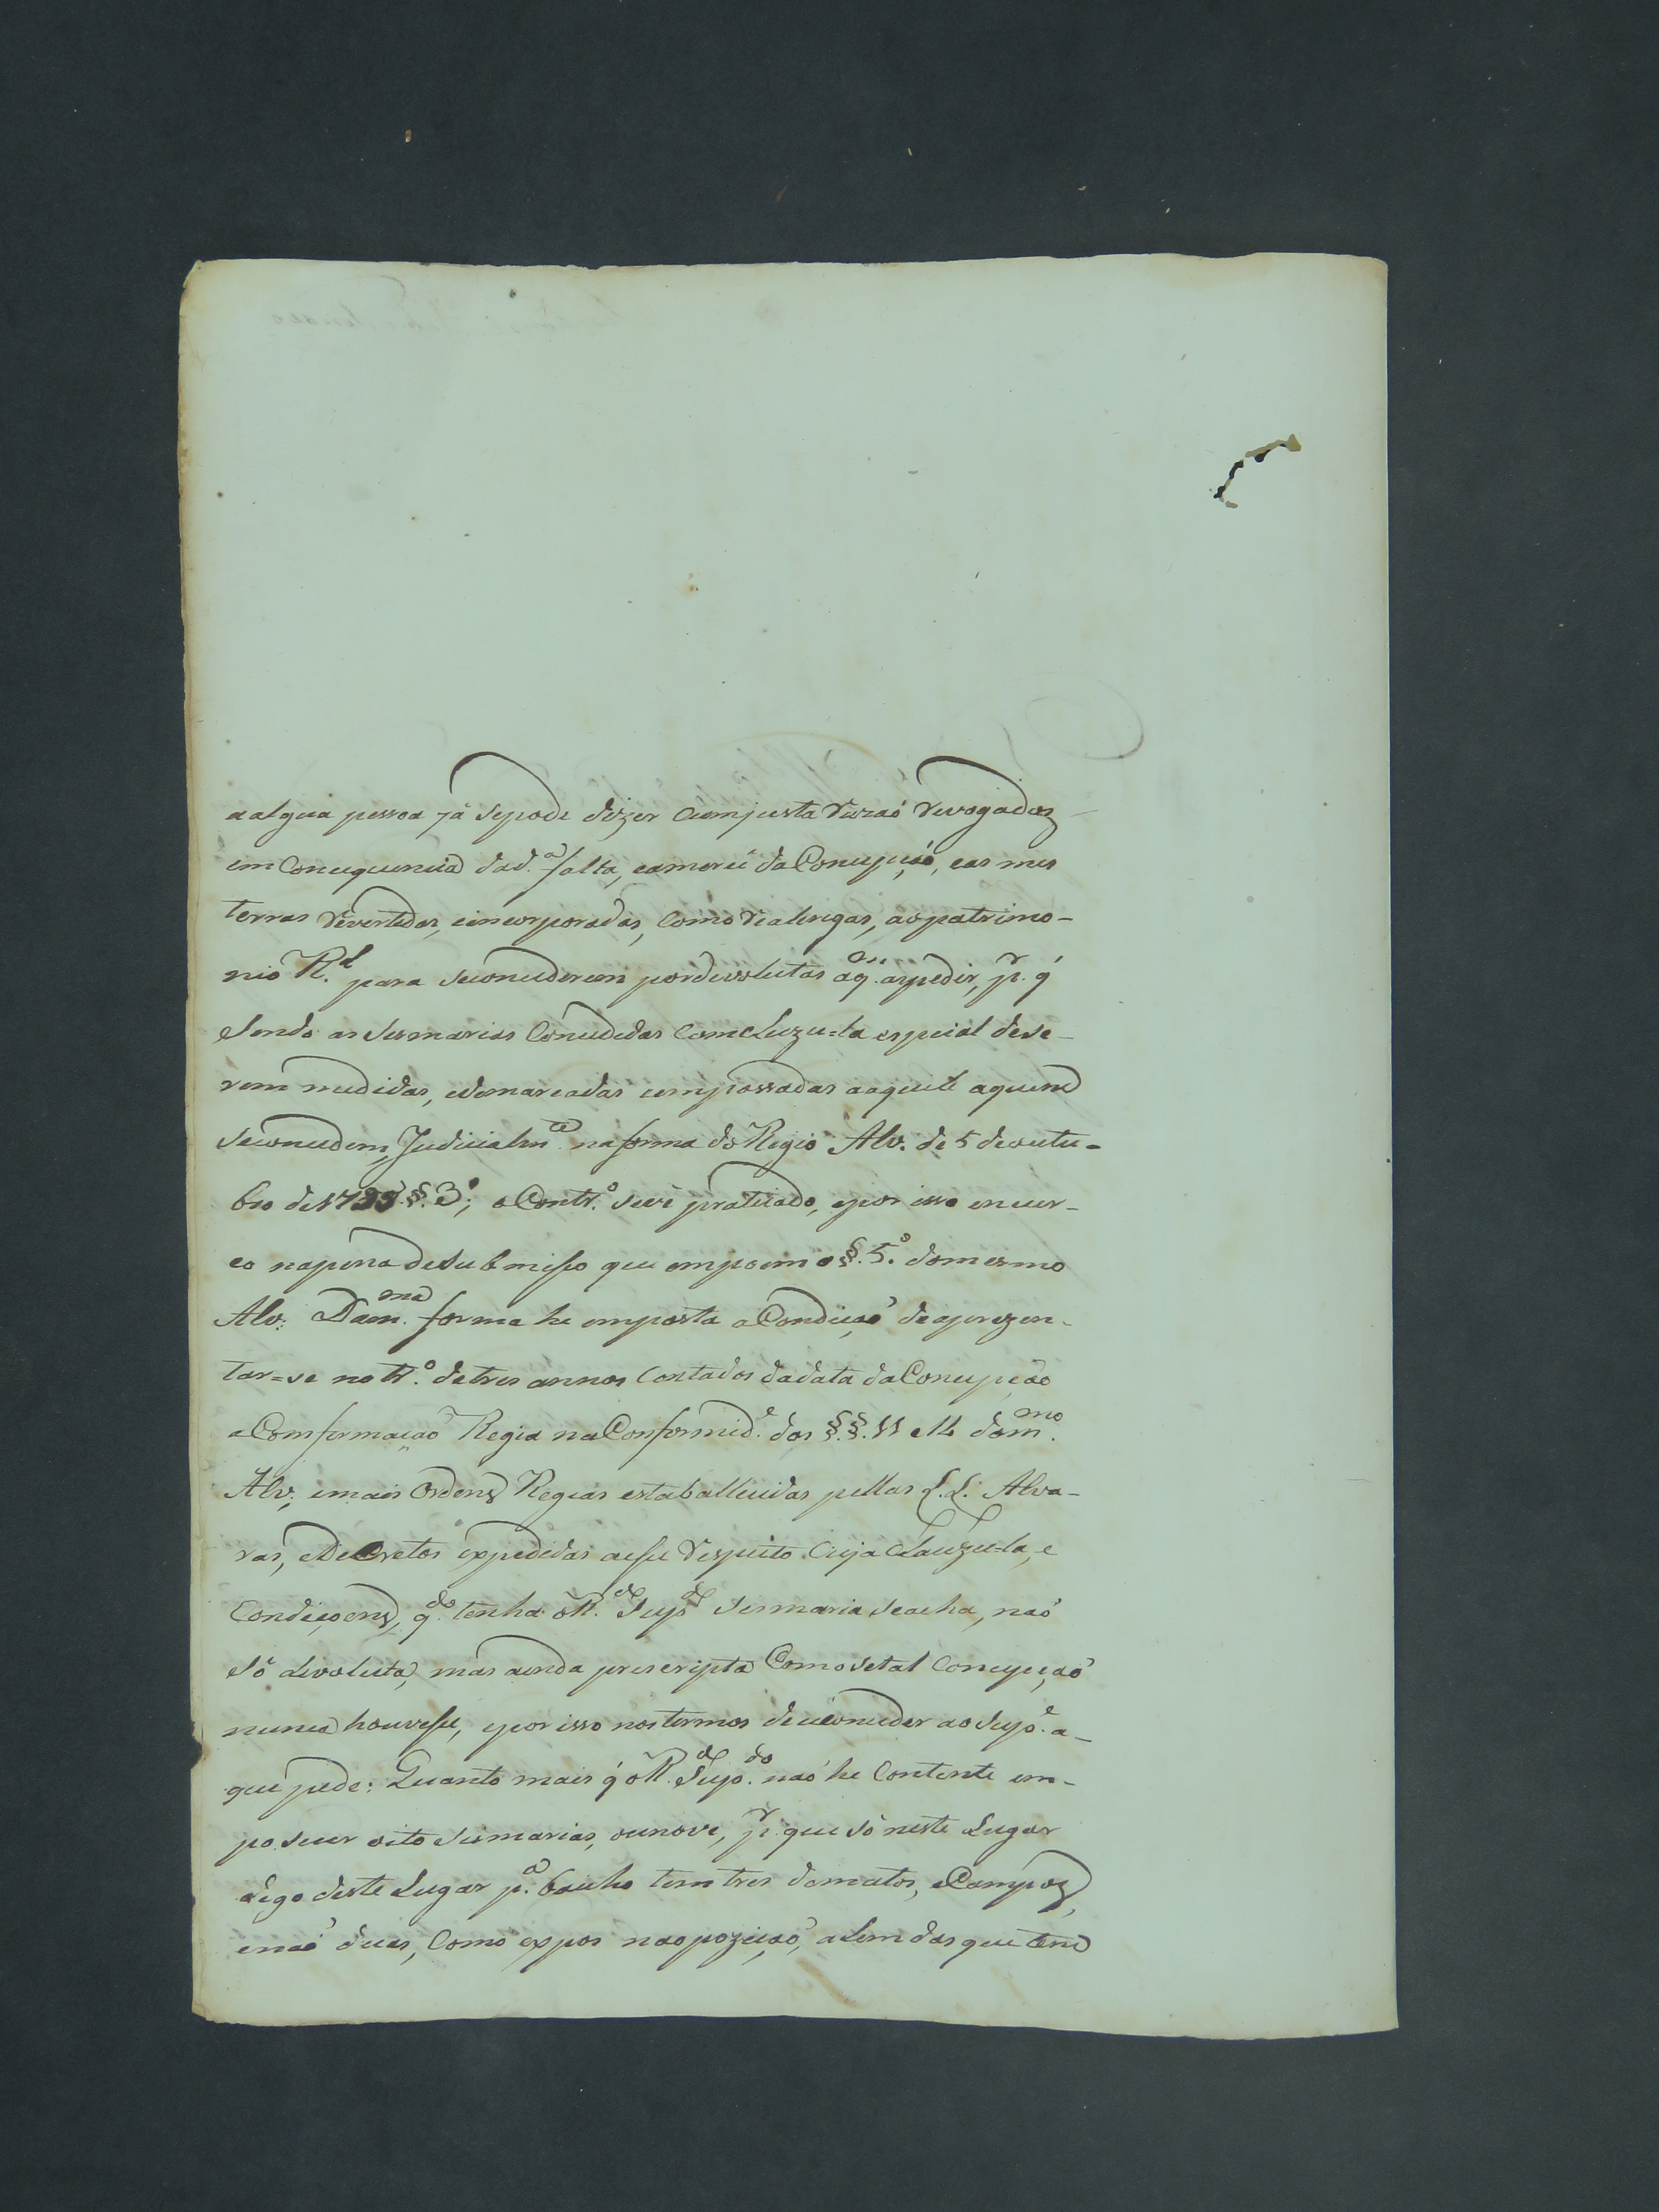 aalgua pessoa já sepode dizer Cumjusta Razaó Revogadas
em Concequencia dad.ª falta, eamercê da Concepçaó, eas mes
terras Revertidas, eincorporadas, como Realengas, aopatrimo-
nio R.l para seconcederem pordevolutas aq.m aspedir, p.r q̃
Sendo as Sesmarias Concedidas Comcluzu=la especial dese-
rem medidas, edemarcadas eempossadas aaquele aquem
Seconcedem, Judicialm.te na forma do Regio Alv. de 5 deoutu-
bro de 1795 §. 3º; o Contr.º sevê praticado, epor isso encur-
eo napena desubmisso que empoem o §. 5.º domesmo
Alv. Dam.ma forma he emposta a Condiçaó deaprezen-
tar=se no tr.º detres annos Contados dadata da Concepçaõ
a Comfirmaçaó Regia na Conformid.e dos §.§. 11 e 14 dom.mo
Alv., emais Ordens Regias estabalecidas pellas L.L. Alva-
ras, e Decretos expedidas aesse Respeito. Cuja Clauzu=la, e
Condiçoens, q.do tenha o R.do Sup.do Sesmaria seacha, naó
só devoluta, mas ainda prescripta Comosetal Concepçaó
nunca houvesse, epor isso nostermos desiconceder ao Sup.e a-
que pede: Quanto mais q̃ o R.do Sup.do naó he Contente em-
possuir oito Sesmarias, ounove, p.r que só neste Lugar
digo deste Lugar p.ª baicho tem tres dematos, e Campos,
enaó duas, Como expos naopoziçaó, alem dasque tem